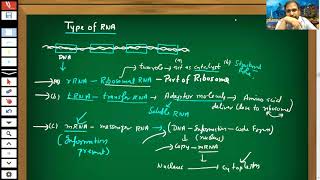 Type of RNA
DNA
(a) → rRNA - Ribosomal RNA - Part of Ribosome
(a) act as catalyst (b) Structural
(b) tRNA - transfer RNA → Adaptor molecule → Amino acid
deliver close to ribosome
Soluble RNA
(c) mRNA - messenger RNA → (DNA - Information - Code Form)
(Information present)
(nucleus)
Copy - mRNA
Nucleus → Cytoplasm